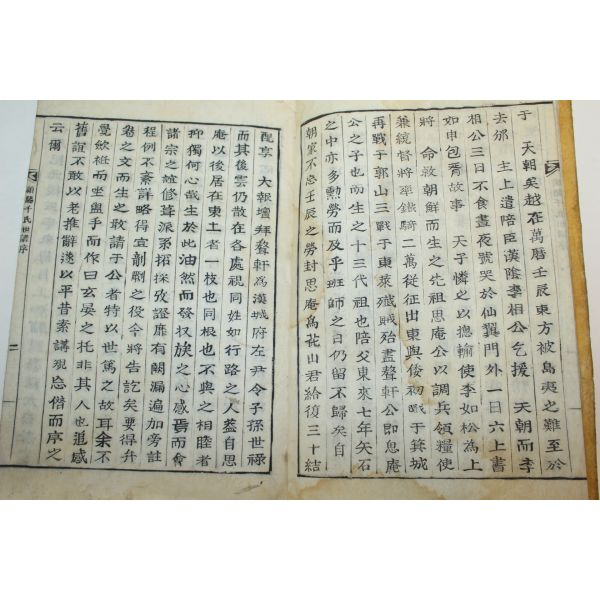 于 天朝矣越在萬曆壬辰東方被島夷之難至於
去邠 主上遣陪臣漢陰李相公乞援 天朝而李
相公三日不食晝夜號哭於仙鳳門外一日六上書
如申包胥故事 天子憐之以德輸使李如松為上
將 命救朝鮮而生之先祖思庵公以調兵領糧使
兼總督將率鐵騎二萬從征出東與倭初戰于箕城
再戰于郭山三戰于東萊殲賊殆盡聲軒公即思庵
公之子也而生之十三代祖也陪父東來七年矢石
之中亦多勲勞而及乎班師之日仍留不歸矣自
朝家不忘壬辰之勞封思庵為花山君給復三十結
配享 大報壇拜聲軒為漢城府左尹令子孫世祿
而其後雲仍散在各處視同姓如行路之人盖自思
庵以後居在東土者一枝也同根也不與之相睦者
抑獨何心哉生於此油然而發收族之心感焉而會
諸宗之誼修萃派系招採攷證靡有闕漏遍加旁註
程例不紊詳略得宜剞劂之役今將告訖矣要得弁
卷之文而生之敢請于公者特以世篤之故耳余不
覺斂袵而坐盥手而作曰玄晏之托非其人也追感
舊誼不敢以老推辭遂以平昔素講規忘僣而序之
云爾
潁陽千氏世譜序
二